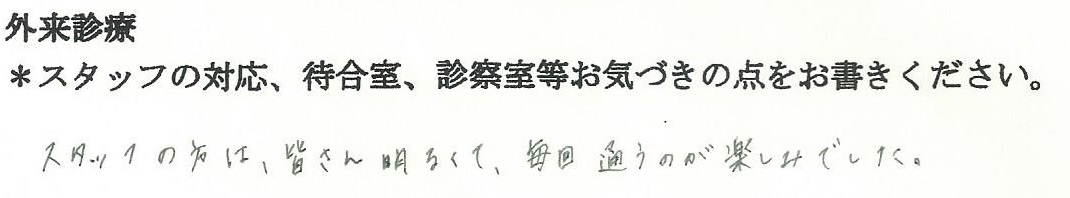 外来診療
＊スタッフの対応、待合室、診察室等お気づきの点をお書きください。
スタッフの方は、皆さん明るくて、毎回通うのが楽しみでした。